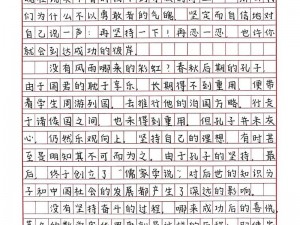 们为什么不以勇敢者的气魄，坚定而自信地对
自己说一声：再坚持一下！再忍一忍，也许你
就会到达成功的彼岸。
没有风雨哪来的彩虹？春秋后期的孔子，
由于国君的耽于享乐，长期得不到重用，便带
着学生周游列国，去推行他的治国方略。
于诸侯国之间，也不曾得到重用。但孔子并未灰
心，仍然乐观向上，坚持自己的理想，有时甚
至是明知其不可而为之。由于孔子的坚持，最
后，终于创立了“儒家学说”，对后世的知识分
子和中国社会的发展都产生了深远的影响。
没有坚持奋斗的过程，哪来成功后的喜悦。